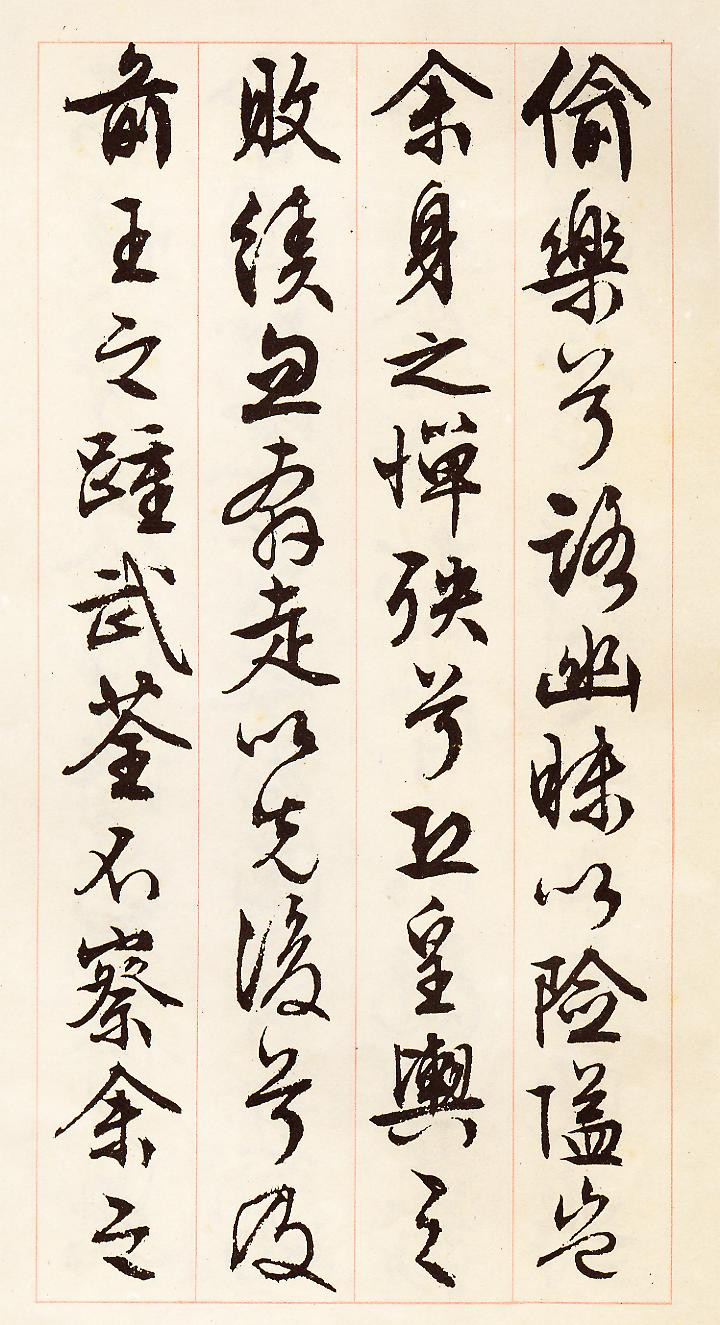 偷樂兮路幽昧以險隘豈
余身之憚殃兮恐皇輿之
敗績忽奔走以先後兮及
前王之踵武荃不察余之